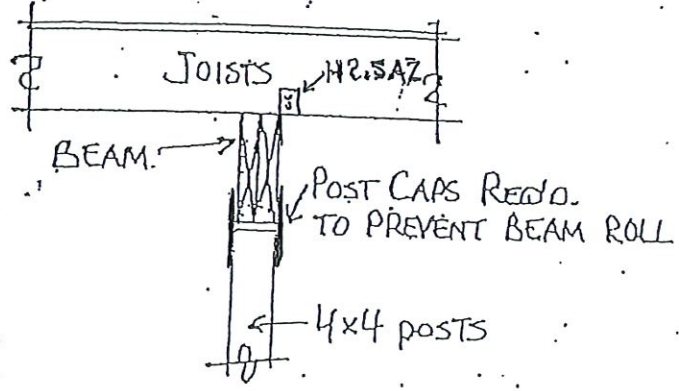 JOISTS
H2.5AZ
BEAM.
POST CAPS REQ'D.
TO PREVENT BEAM ROLL
4x4 POSTS